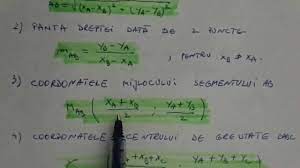 √(x_A - x_B)² + (y_A - y_B)²
2) PANTA DREPTEI DATĂ DE 2 PUNCTE
m_AB = (y_B - y_A) / (x_B - x_A) , PENTRU x_B ≠ x_A.
3) COORDONATELE MIJLOCULUI SEGMENTULUI AB
M_AB ( (x_A + x_B) / 2 , (y_A + y_B) / 2 )
4) COORDONATELE CENTRULUI DE GREUTATE